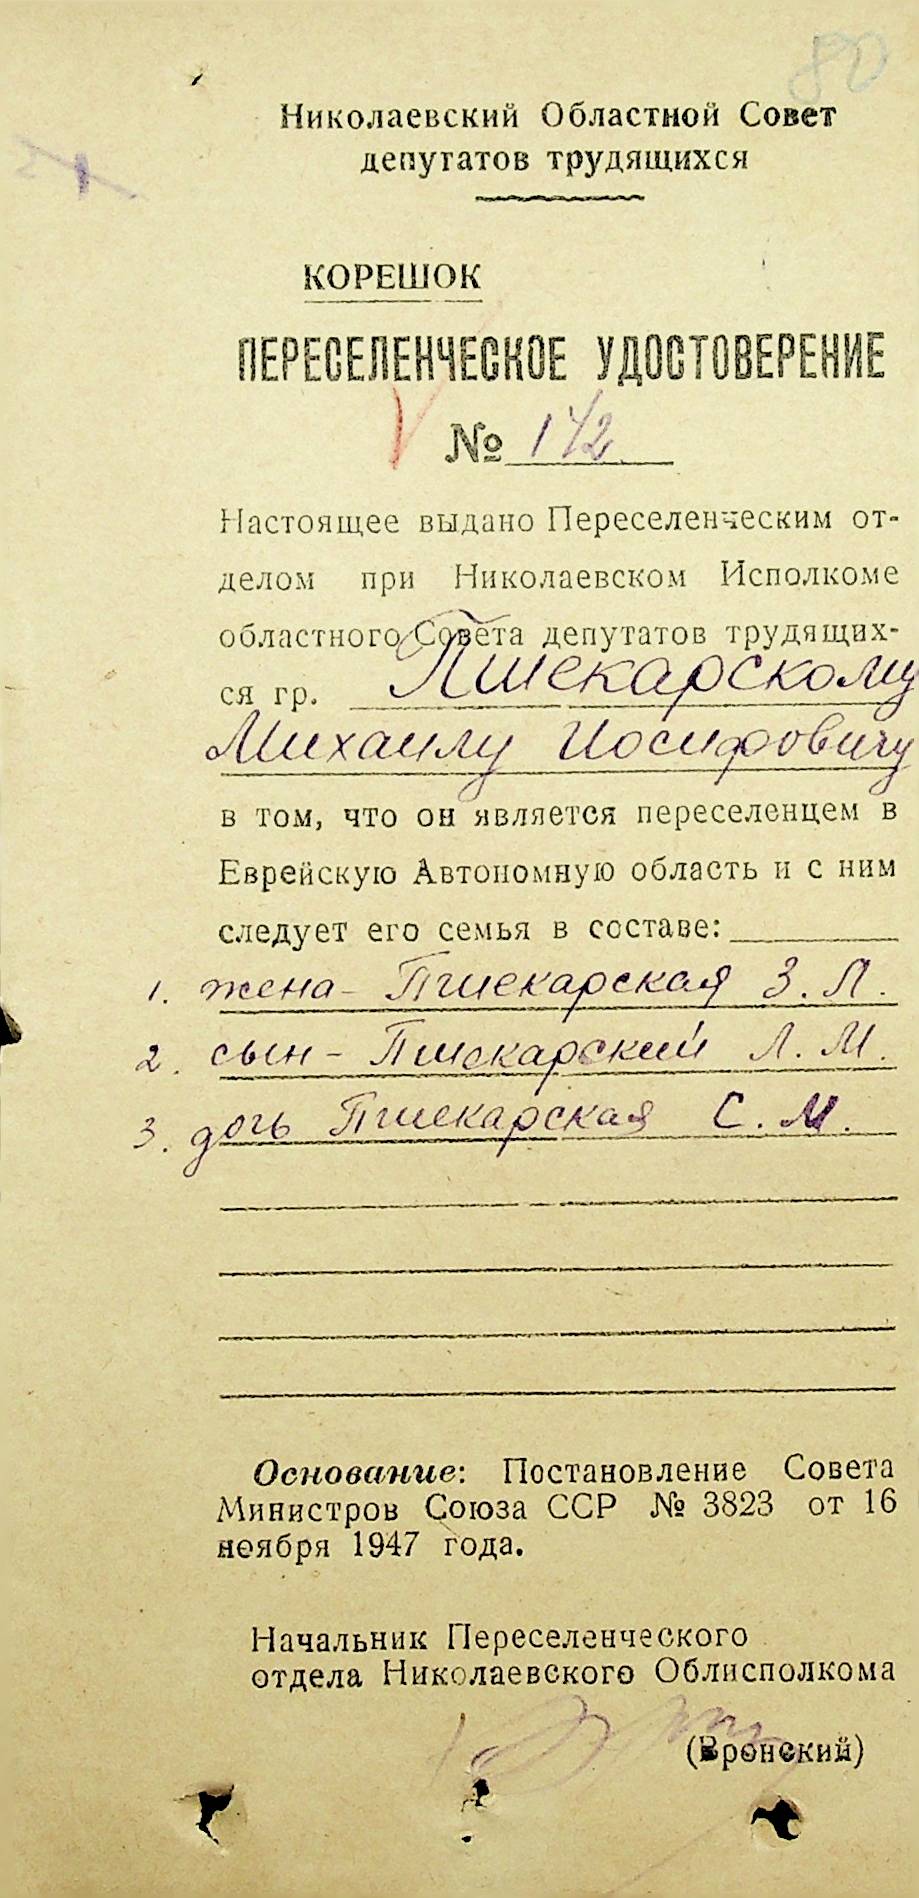 80
Николаевский Областной Совет
депутатов трудящихся
КОРЕШОК
ПЕРЕСЕЛЕНЧЕСКОЕ УДОСТОВЕРЕНИЕ
№ 142
Настоящее выдано Переселенческим от-
делом при Николаевском Исполкоме
областного Совета депутатов трудящих-
ся гр. Пшекарскому
Михаилу Иосифовичу
в том, что он является переселенцем в
Еврейскую Автономную область и с ним
следует его семья в составе:
1. жена - Пшекарская З. Л.
2. сын - Пшекарский Л. М.
3. дочь Пшекарская С. М.
Основание: Постановление Совета
Министров Союза ССР № 3823 от 16
ноября 1947 года.
Начальник Переселенческого
отдела Николаевского Облисполкома
(Вронский)